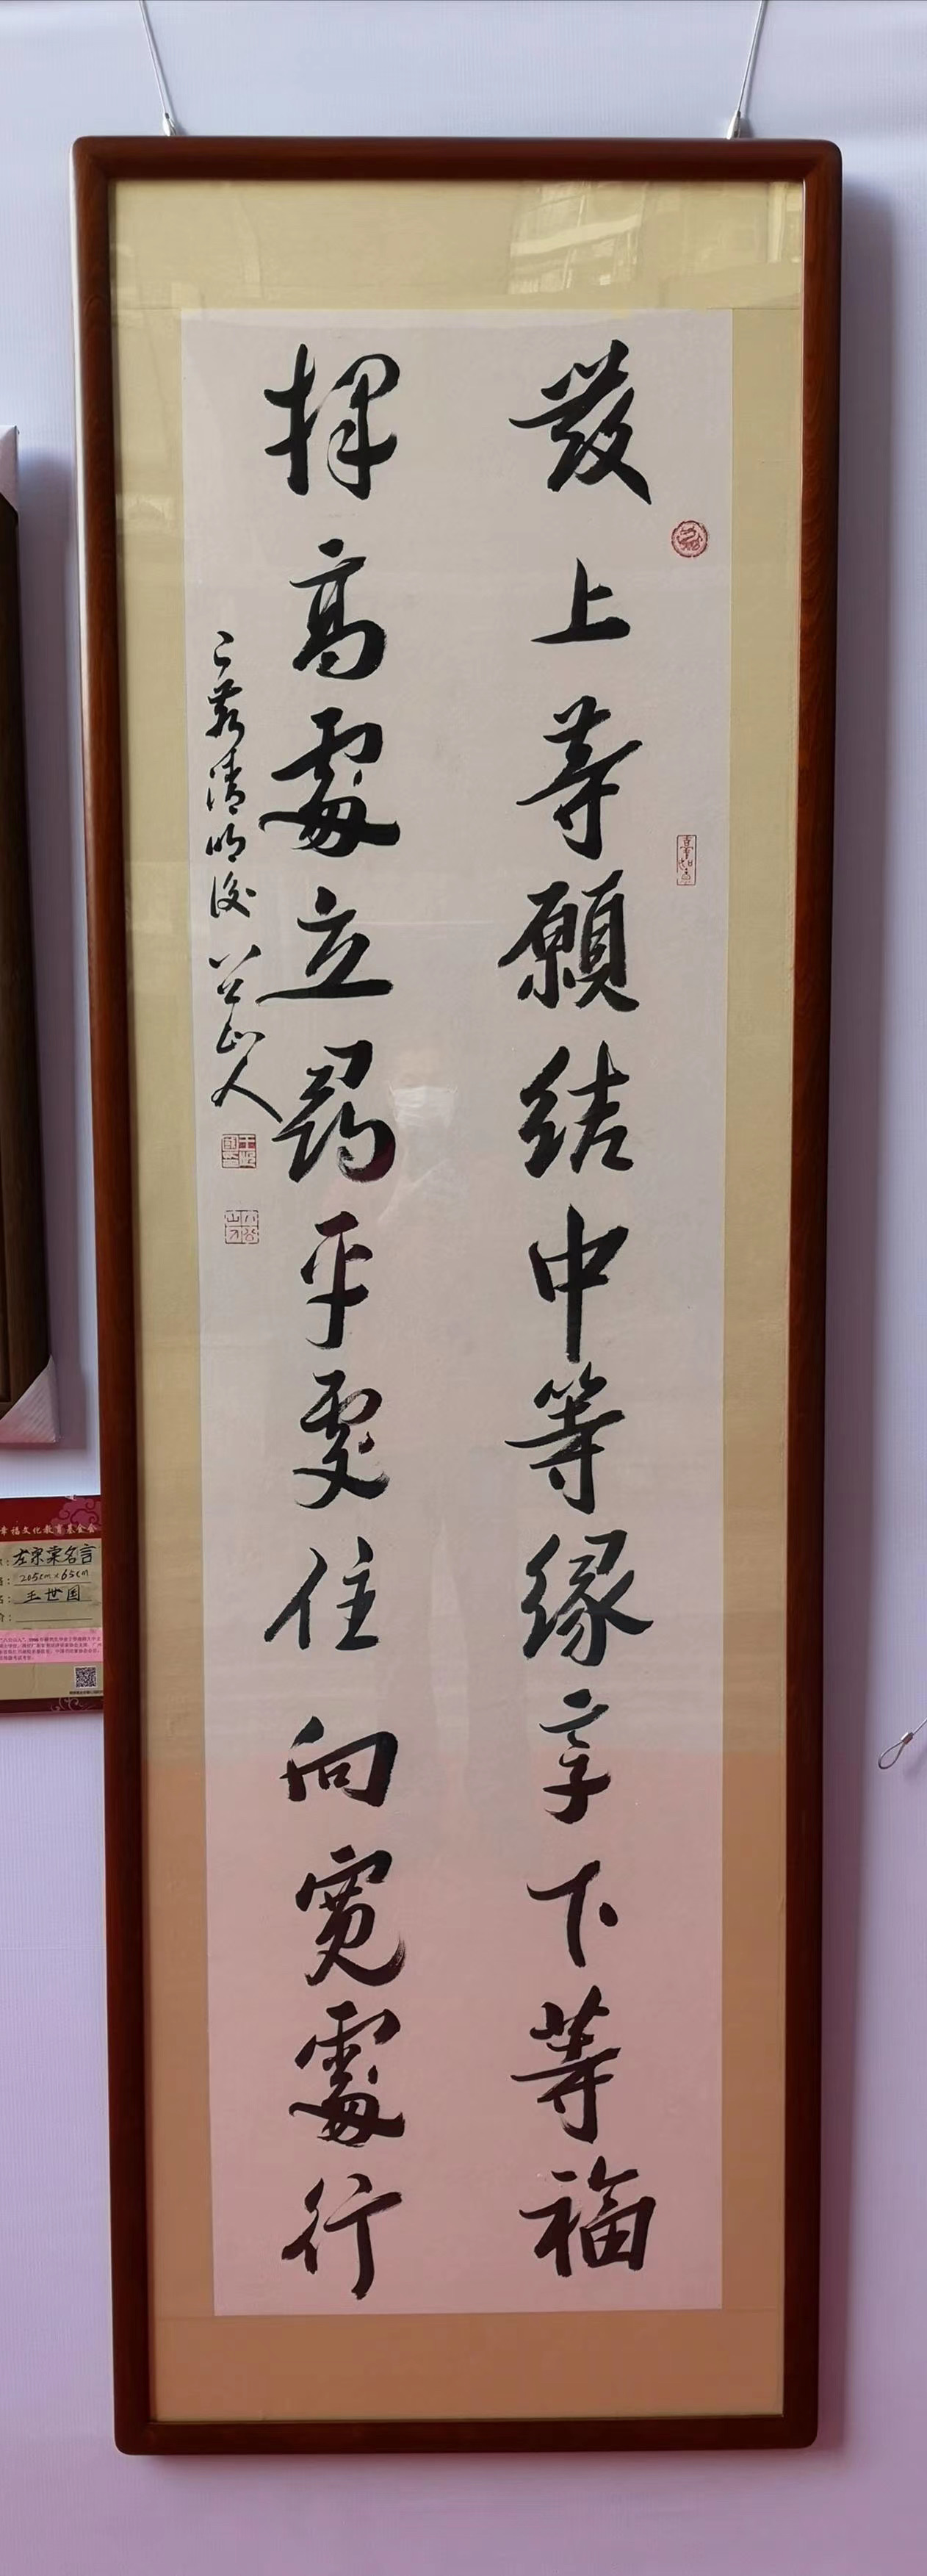 發上等願結中等緣享下等福
擇高處立尋平處住向寬處行
清明後 八公山人
幸福文化教育基金会
左宗棠名言
205cm×65cm
王世国